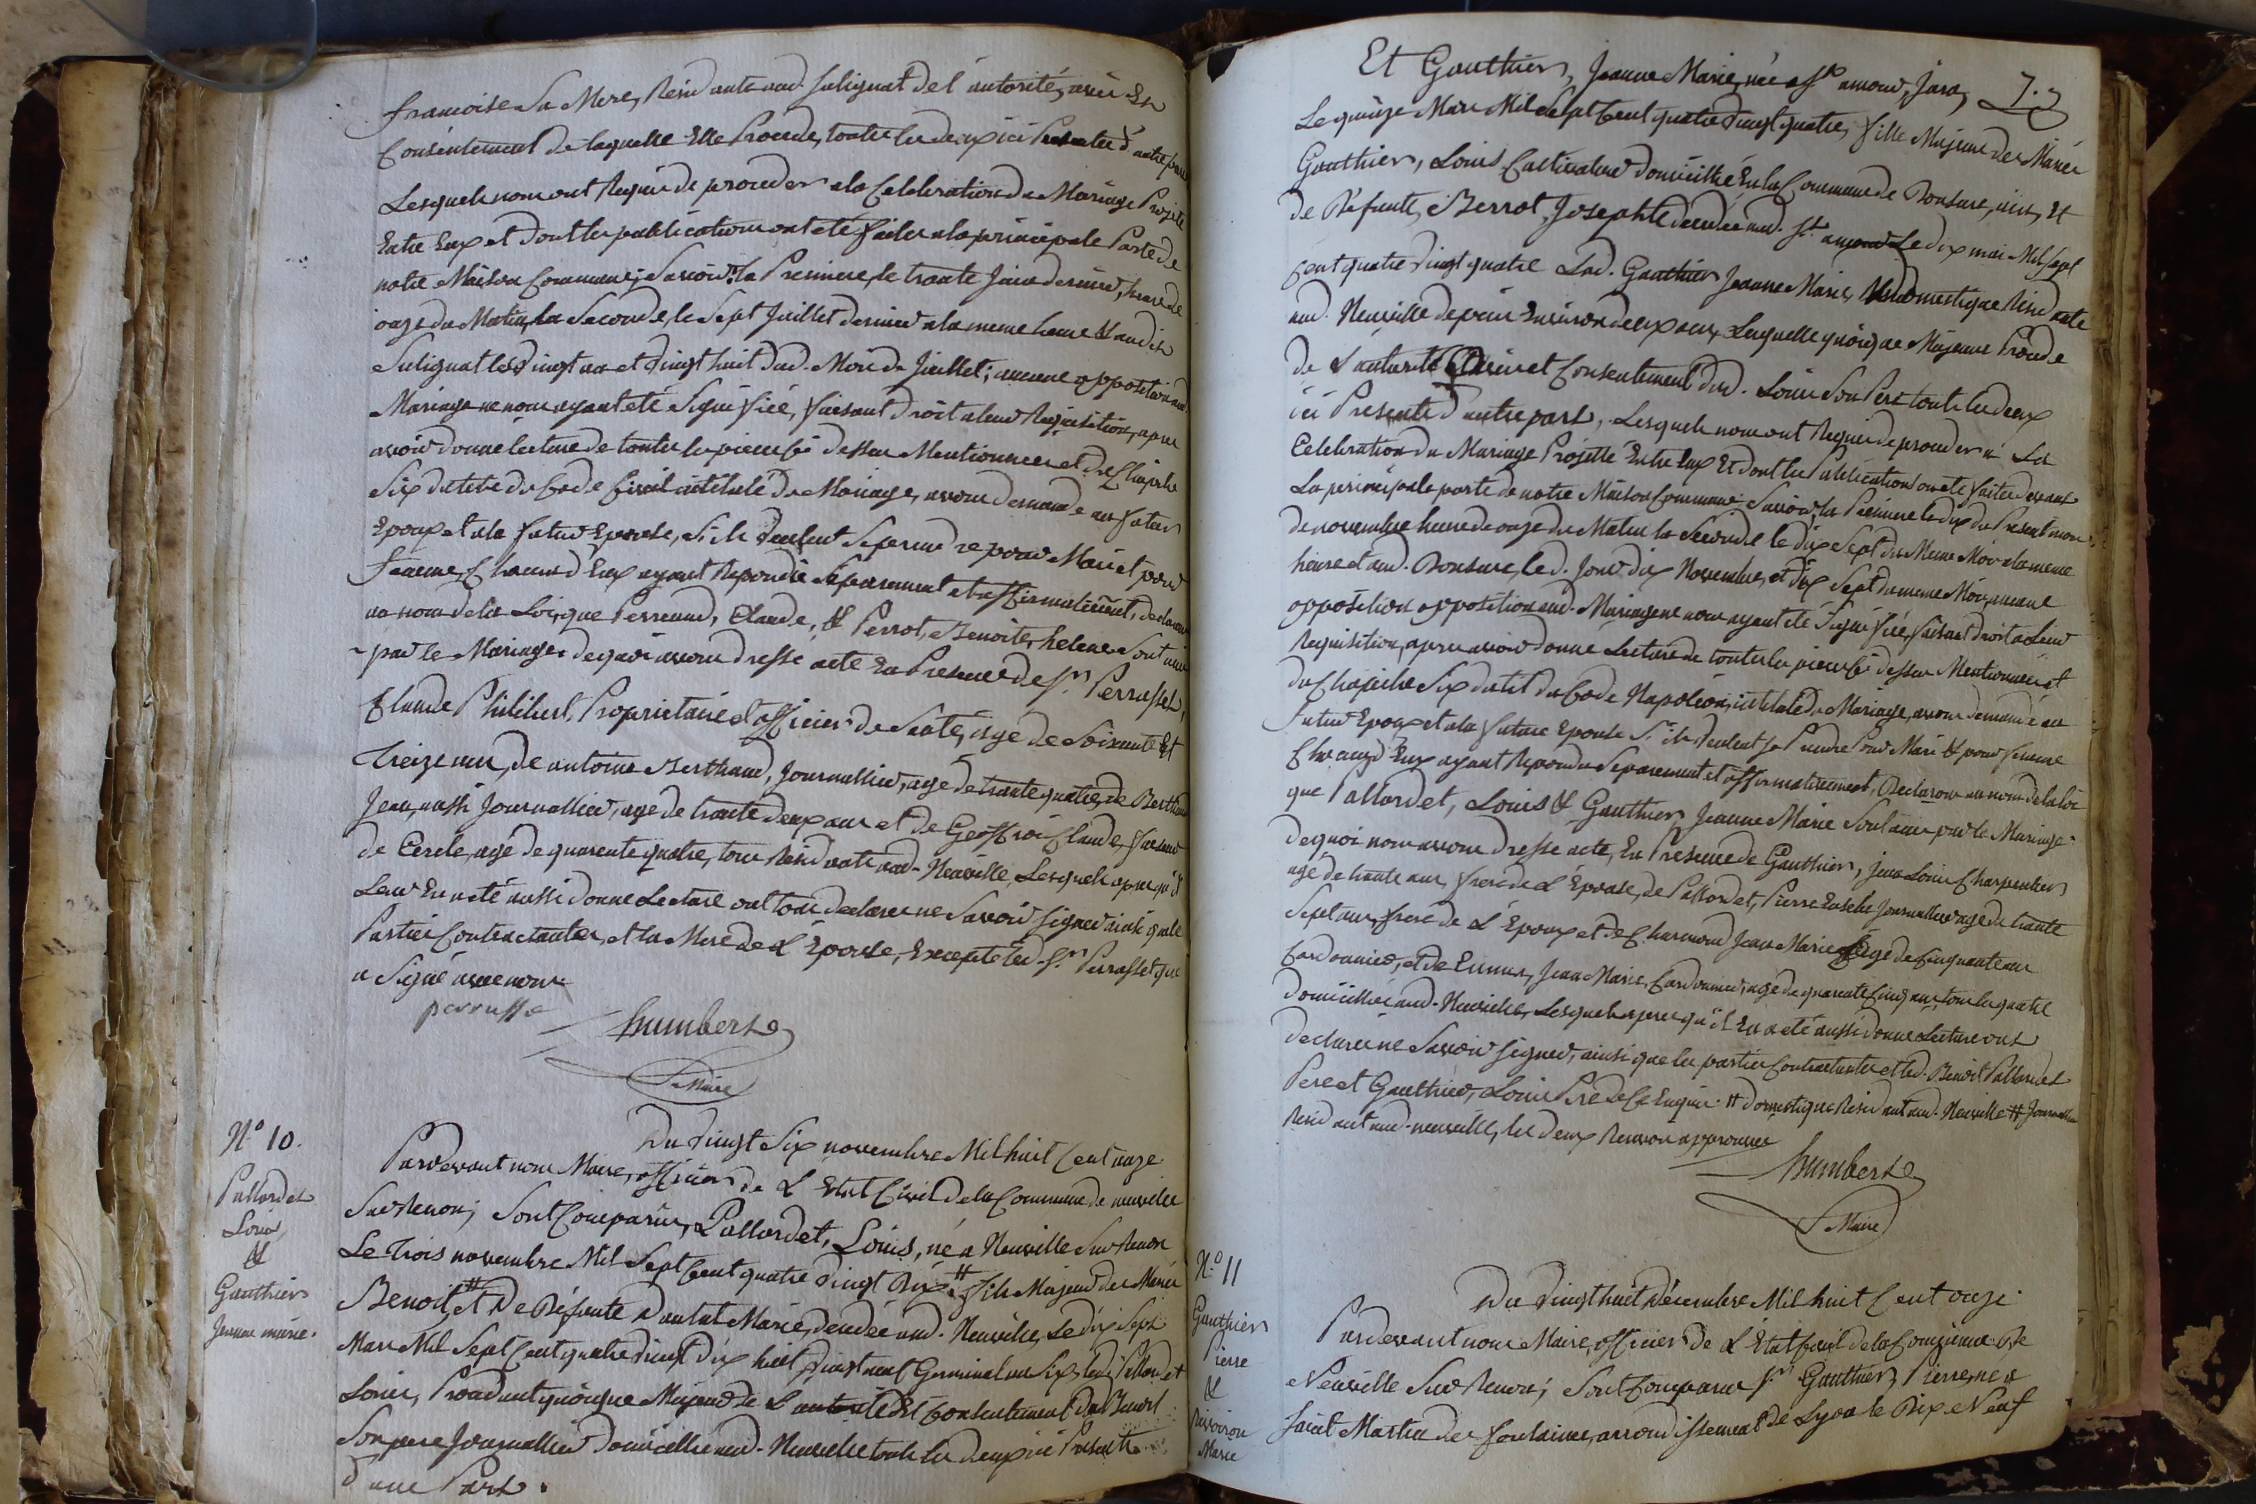 francoise Sa Mere, Residante aud. Sulignat de l'autorité, avis Et
Consentement de laquelle Elle Procede, toutes les deux ici Presentes d'autre part
Lesquels nous ont Requis de proceder a la Celebration du Mariage Projeté
Entre Eux et dont les publications ont été faites a la principale Porte de
notre Maison Commune; Savoir: la Premiere, le trante Juin dernier, heure de
onze du Matin, la Seconde, le Sept Juillet dernier a la meme heure & audit
Sulignat les Vingt un et Vingt huit dud. Mois de Juillet; aucune opposition aud.
Mariage ne nous ayant été Signifiée, faisant droit a leur Requisition, apres
avoir donné lecture de toutes les pieces Ci dessus Mentionnées et du Chapitre
Six du titre du Code Civil intitulé du Mariage, avons demandé au futur
Epoux et a la future Epouse, S'ils Veulent Se prendre pour Mari et pour
femme, Chacun d'Eux ayant Repondu Séparement et affirmativement, declarons
au nom de la Loi, que Perreaud, Claude, & Perrot, Benoite, helene Sont unis
par le Mariage. de quoi avons dressé acte En Presence de Sr. Perrusset,
Claude Philibert, Proprietaire et officier de Santé, agé de Soixante Et
Treize ans, de antoine Berthaud, Journallier, agé de trante quatre, de Berthaud
Jean, aussi Journallier, agé de trante deux ans et de Geoffroi Claude, faiseur
de Cercle, agé de quarente quatre, tous Residants aud. Neuville, Lesquels apres qu'il
Leur En a été aussi donné Lecture ont tous declaré ne Savoir Signer ainsi que les
Parties Contractantes, et la Mere de L'Epouse, Excepté led. Sr. Perrusset qui
a Signé avec nous
perrusse
humbert
Maire
N° 10.
Pallordet
Louis,
&
Gauthier
Jeanne marie.
Du Vingt Six novembre Mil huit Cent onze
Pardevant nous Maire, officier de L'Etat Civil de la Commune de neuville
Sur Renon; Sont Comparus, Pallordet, Louis, né a Neuville Sur Renon
Le Trois novembre Mil Sept Cent quatre Vingt Dix # fils Majeur des Mariés
Benoit # et De Défunte Dantat Marie, decedée aud. Neuville, Le dix Sept
Mars Mil Sept Cent quatre Vingt dix huit, Vingt neuf Germinal an Six, led. Pallordet
Louis, Procedant quoique Majeur de L'autorité Et Consentement du Benoit
Son pere Journallier domicillié aud. Neuville touts les deux ici Presents
d'une Part.
Et Gauthier, Jeanne Marie, née a St. amour, Jura, 7.
Le quinze Mars Mil Sept Cent quatre Vingt quatre, fille Majeure des Mariés
Gauthier, Louis Cultivateur domicillié En la Commune de Romans, ain, Et
de Défunte, Berrot, Josephte decedée aud. St. amour Le dix mai Mil Sept
Cent quatre Vingt quatre Lad. Gauthier Jeanne Marie, domestique Residante
aud. Neuville depuis Environ deux ans, Laquelle quoique Majeure Procede
de L'autorité avis et Consentement dud. Louis Son Pere touts les deux
ici Presents d'autre part, Lesquels nous ont Requis de proceder a La
Celebration du Mariage Projetté Entre Eux Et dont les Publications ont été faites devant
La principale porte de notre Maison Commune. Savoir, la Premiere le dix du Present mois
de novembre heure de onze du Matin la Seconde le dix Sept du Meme Mois a la meme
heure et aud. Romans, led. Jour dix Novembre, et dix Sept du meme Mois, aucune
opposition opposition aud. Mariage ne nous ayant été Signifiée, faisant droit a Leur
Requisition, apres avoir donné Lecture de toutes les pieces Ci dessus Mentionnées et
du Chapitre Six du tit. du Code Napoléon, intitulé du Mariage, avons demandé au
futur Epoux et a la future Epouse S'ils Veulent Se Prendre Pour Mari & pour femme
Chacun d'Eux ayant Repondu Séparement et affirmativement, Declarons au nom de la loi
que Pallordet, Louis & Gauthier, Jeanne Marie Sont unis par le Mariage.
de quoi nous avons dressé acte, En Presence de Gauthier, Jean Louis Charpentier
agé de trante ans, frere de L'Epouse, de Pallordet, Pierre Eusebe Journallier agé de trante
Sept ans, frere de L'Epoux et de Charnoud Jean Marie agé de Cinquante ans
Cordonnier, et de Jean Marie, Cordonnier, agé de quarente Cinq ans, tous les quatre
domicilliés aud. Neuville, Lesquels apres qu'il En a été aussi donné Lecture ont
declaré ne Savoir Signer, ainsi que les parties Contractantes et led. Benoit Pallordet
Pere et Gauthier, Louis Pere de Ce Enquis. # domestique Residant aud. Neuville # Journallier
Residant aud. neuville, les deux Renvois approuvés
humbert
Maire
N° 11
Gauthier
Pierre
&
Marie
Du Vingt huit Décembre Mil huit Cent onze.
Pardevant nous Maire, officier de L'Etat Civil de la Commune De
Neuville Sur Renon; Sont Comparus Sr. Gauthier, Pierre, né a
Saint Martin des fontaines, arrondissement de Lyon le Dix Neuf